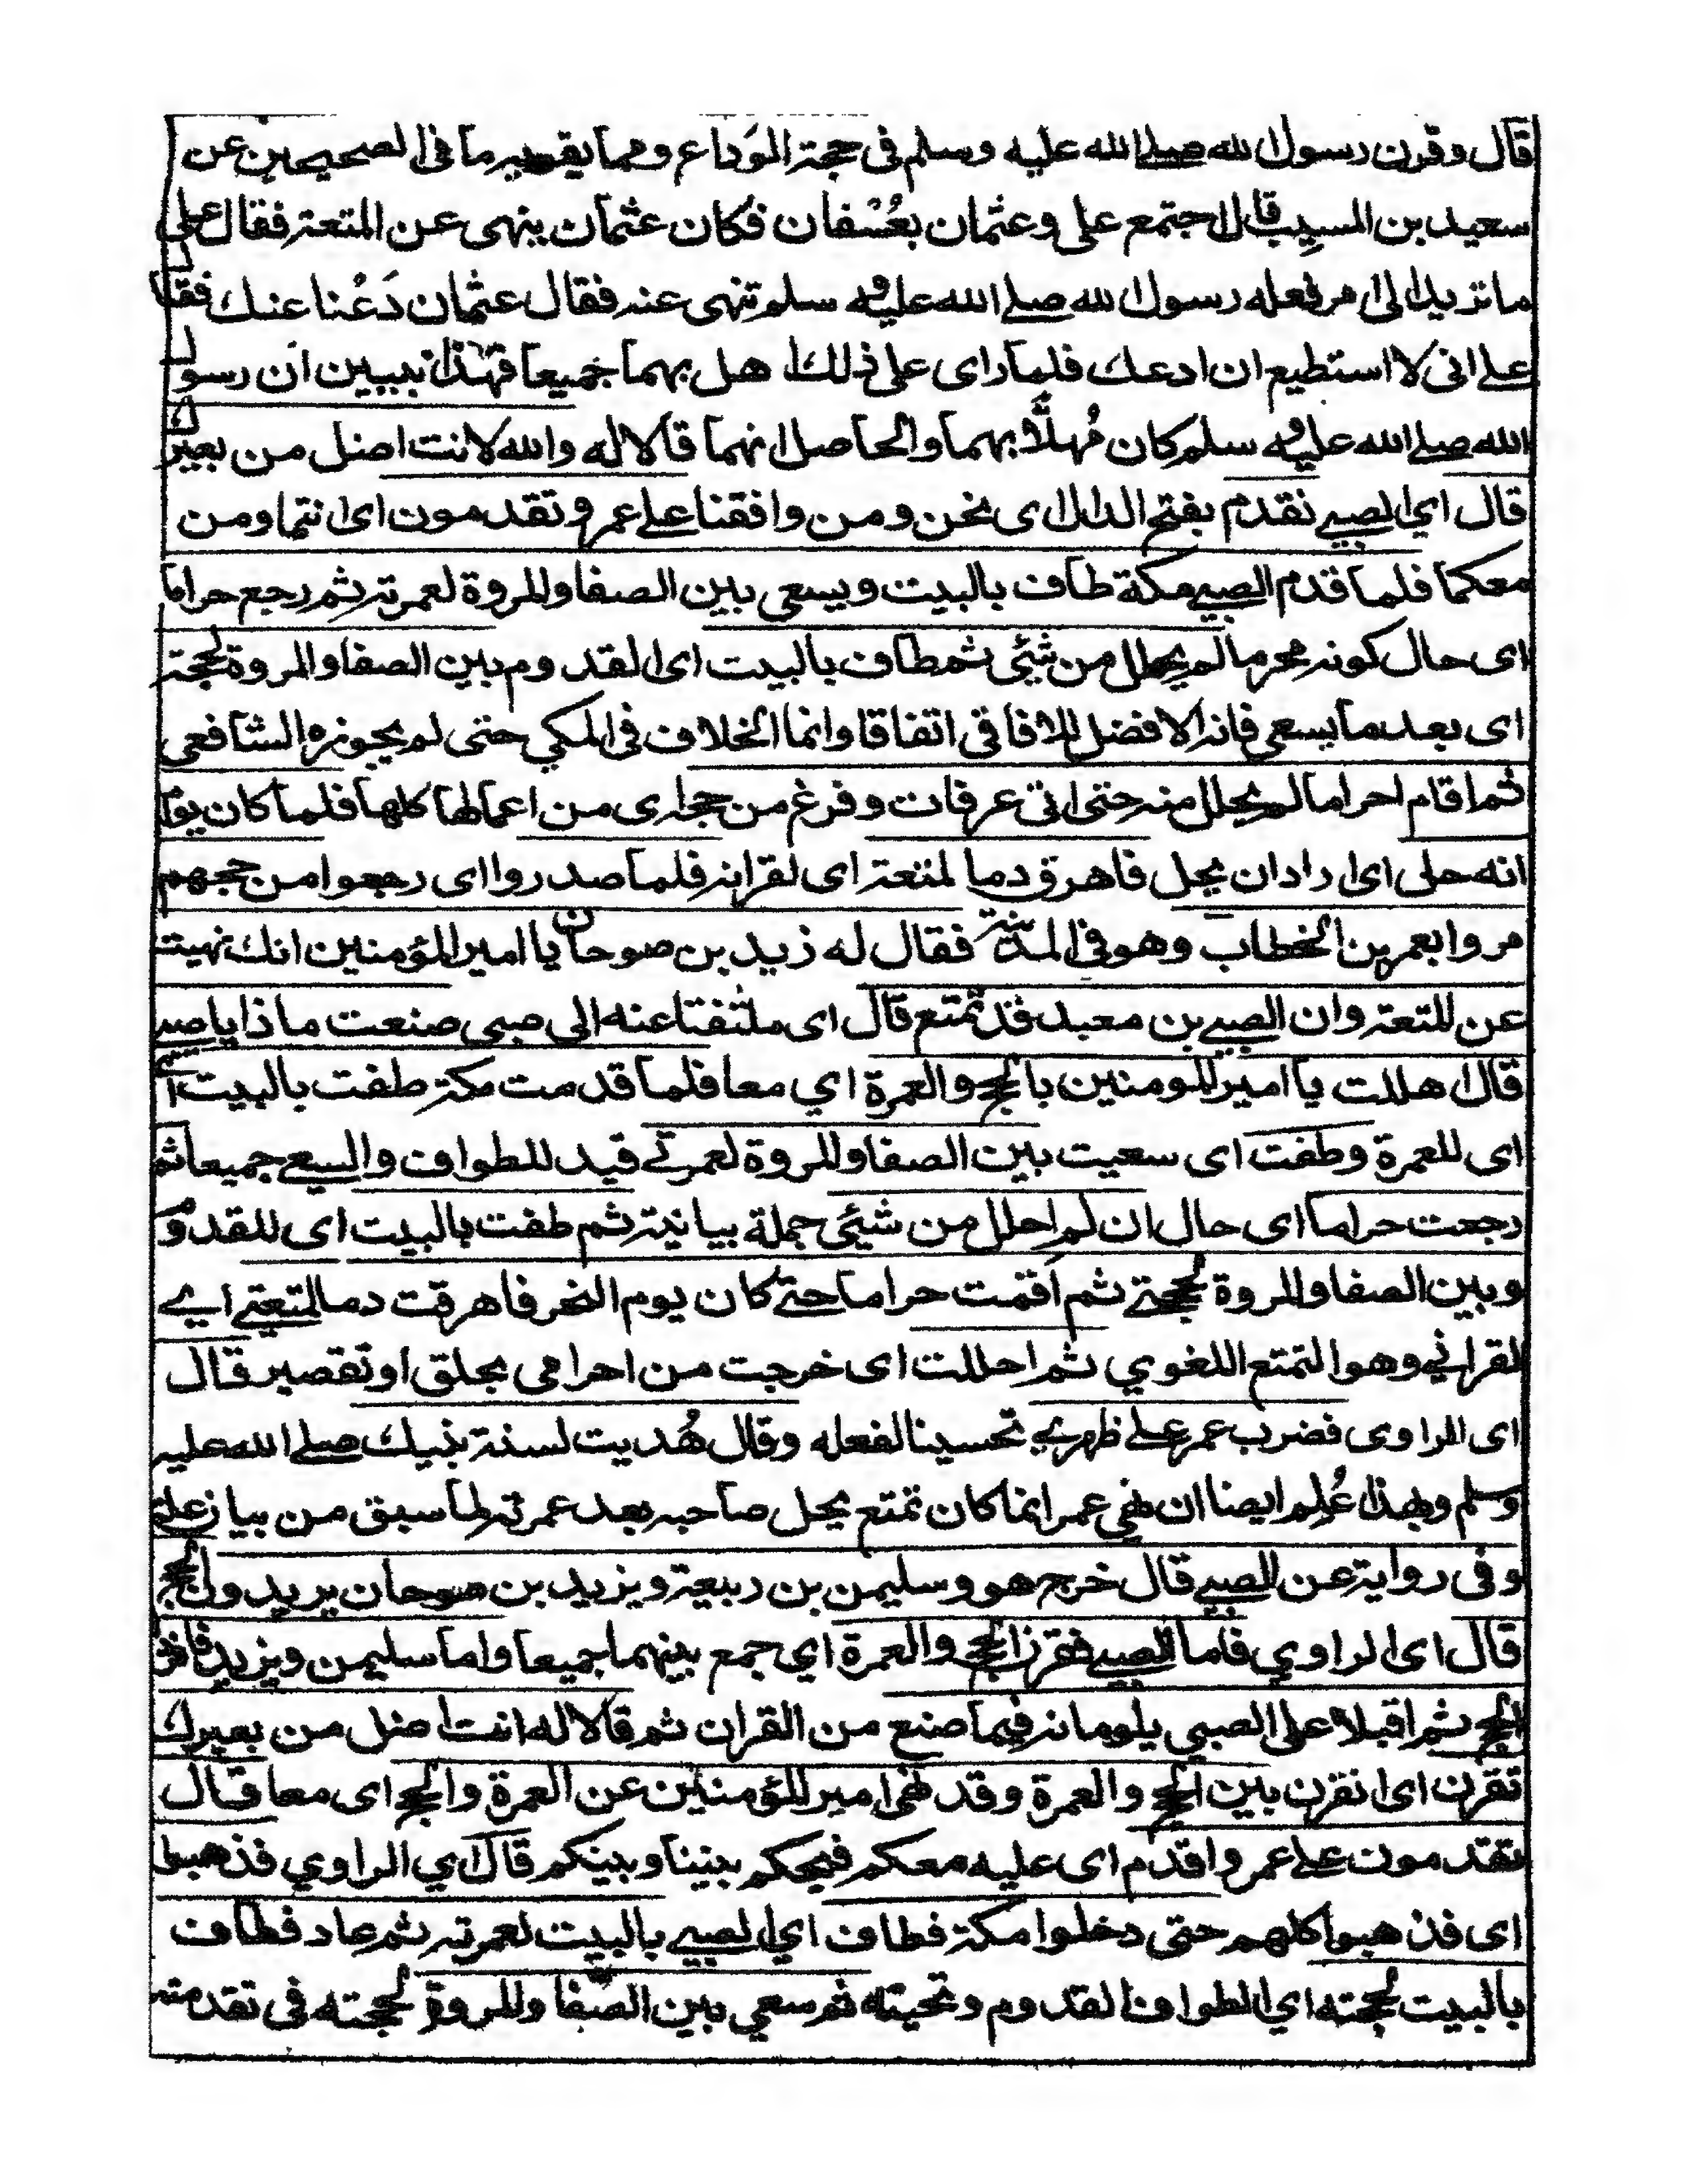 قال وقرن رسول الله صلے الله عليه وسلم فى حجة الوداع ومما يقويه ما فى الصحيحين عن
سعيد بن المسيب قال اجتمع على وعثمان بعُسْفان فكان عثمان ينهى عن المتعة فقال على
ما تريد الى امر فعله رسول الله صلے الله عليه وسلم تنهى عنه فقال عثمان دَعْنا عنك فقال
علے انى لا استطيع ان ادعك فلما راى على ذلك اهل بهما جميعا فهذا يبين ان رسول
الله صلے الله عليه وسلم كان مُهلًّا بهما والحاصل انهما قالا له والله لانت اضل من بعيرك
قال اي الصبے نقدم بفتح الدال اى نحن ومن وافقنا علے عمر وتقدمون اى انتما ومن
معكما فلما قدم الصبے مكة طاف بالبيت ويسعى بين الصفا والمروة لعمرته ثم رجع حراما
اى حال كونه محرما لم يحلل من شئى ثم طاف بالبيت اى القدوم بين الصفا والمروة لحجته
اى بعد ما يسعى فانه الافضل للافاقى اتفاقا وانما الخلاف فى المكي حتى لم يجوزه الشافعى
ثم اقام احراما لم يحلل منه حتى اتى عرفات وفرغ من حجه اى من اعمالها كلها فلما كان يوم
انه حلى اى اراد ان يحل فاهرق دما لمتعة اى لقرانه فلما صدروا اى رجعوا من حجهم
مروا بعمر بن الخطاب وهو فى المدينة فقال له زيد بن صوحان يا امير المؤمنين انك نهيت
عن المتعة وان الصبے بن معبد قد تمتع قال اى ملتفتا عنه الى صبى صنعت ما ذا يا صبى
قال اهللت يا امير المومنين بالحج والعمرة اي معا فلما قدمت مكة طفت بالبيت
اى للعمرة وطفت اى سعيت بين الصفا والمروة لعمرتے قيد للطواف والسعے جميعا ثم
رجعت حراما اى حال ان لم احلل من شئى جملة بيانية ثم طفت بالبيت اى للقدوم
وبين الصفا والمروة لحجتے ثم اقمت حراما حتے كان يوم النحر فاهرقت دما لمتعتے اے
لقراني وهو التمتع اللغوي ثم احللت اى خرجت من احرامى بحلق او تقصير قال
اى الراوى فضرب عمر علے ظهره تحسينا لفعله وقال هُديت لسنة نبيك صلے الله عليه
وسلم وبهذا عُلِم ايضا ان نهى عمر انما كان تمتع يحل صاحبه بعد عمرته لما سبق من بيان علته
وفى رواية عن الصبے قال خرج هو وسليمن بن ربيعة ويزيد بن صوحان يريدون الحج
قال اى الراوي فاما الصبے فقرن الحج والعمرة اي جمع بينهما جميعا واما سليمن ويزيد فافرد
الحج ثم اقبلا على الصبي يلومانه فيما صنع من القران ثم قالا له انت اضل من بعيرك
تقرن اى انقرن بين الحج والعمرة وقد نهى امير المؤمنين عن العمرة والحج اى معا قال
تقدمون علے عمر واقدم اى عليه معكم فيحكم بيننا وبينكم قال اي الراوي فذهبوا
اى فذهبوا كلهم حتى دخلوا مكة فطاف اي الصبے بالبيت لعمرته ثم عاد فطاف
بالبيت لحجته اي الطواف القدوم وتحيته ثم سعي بين الصفا والمروة لحجته فى تقدمته